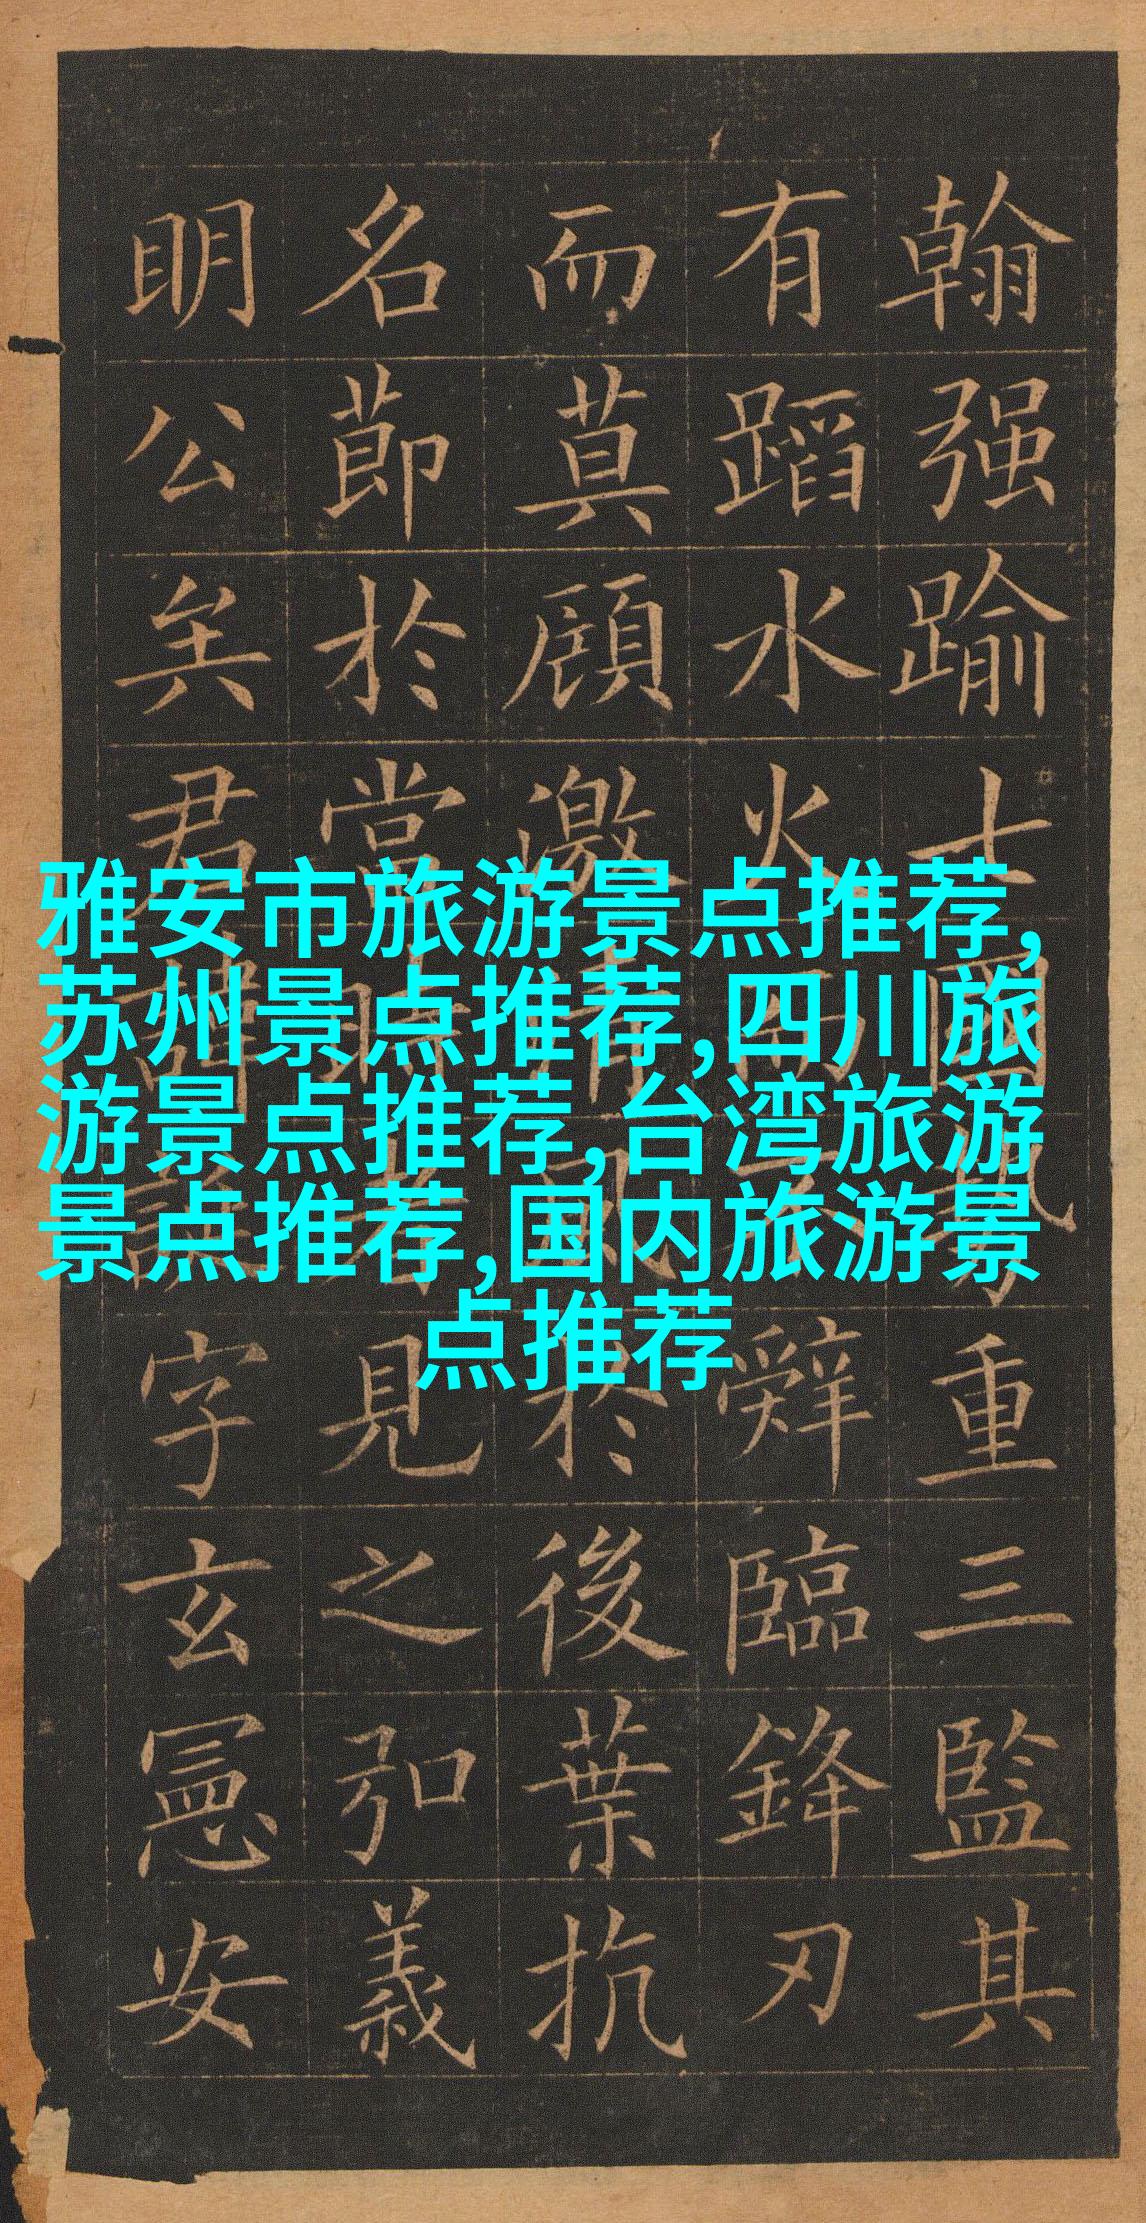 翰强踰七國勢重三監其
有蹈水火而不辭臨鋒刃
而莫顧激清風於後葉抗
名節於當時者見之弘義
明公矣君諱誕字玄憲安
雅安市旅游景点推荐,
苏州景点推荐,四川旅
游景点推荐,台湾旅游
景点推荐,国内旅游景
点推荐